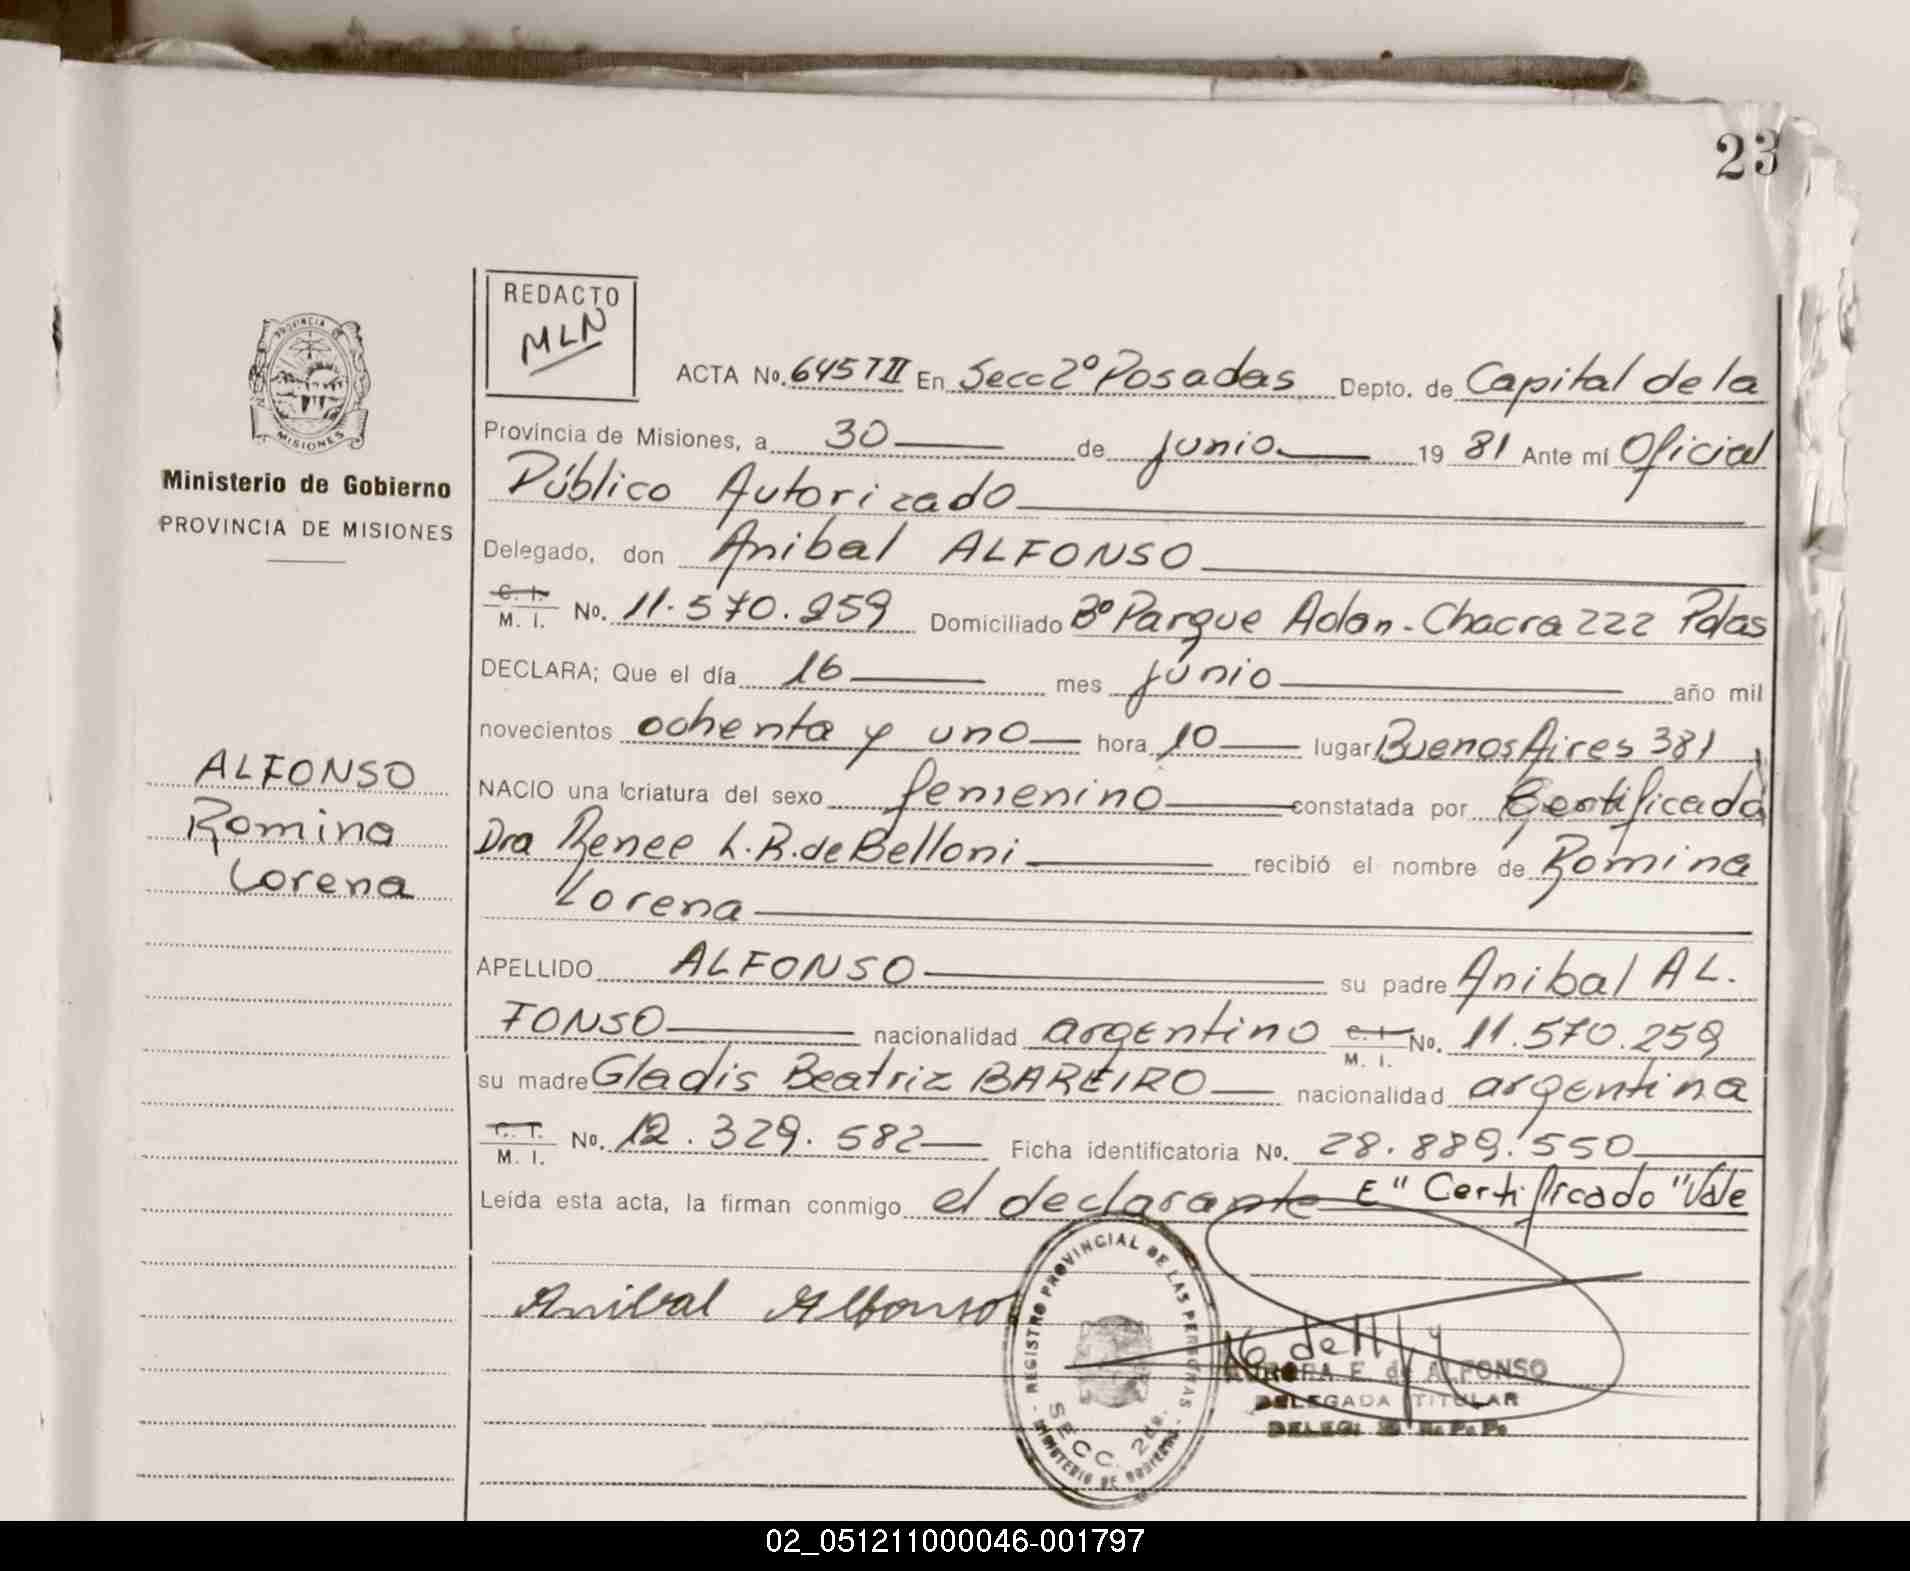 23
REDACTO
MLN
PROVINCIA DE
MISIONES
Ministerio de Gobierno
PROVINCIA DE MISIONES
ALFONSO
Romina
Lorena
ACTA No. 6457II En Secc 2º Posadas Depto. de Capital de la
Provincia de Misiones, a 30 de junio 19 81 Ante mí Oficial
Público Autorizado
Delegado, don Anibal ALFONSO
C. I. M. I. No. 11.570.259 Domiciliado Bº Parque Adan - Chacra 222 Pdas
DECLARA; Que el día 16 mes junio año mil
novecientos ochenta y uno hora 10 lugar Buenos Aires 381
NACIO una criatura del sexo femenino constatada por Certificado
Dra Renee L. R. de Belloni recibió el nombre de Romina
Lorena
APELLIDO ALFONSO su padre Anibal AL-
FONSO nacionalidad argentino C. I. M. I. No. 11.570.259
su madre Gladis Beatriz BAREIRO nacionalidad argentina
C. I. M. I. No. 12.329.582 Ficha identificatoria No. 28.889.550
Leída esta acta, la firman conmigo el declarante E" Certificado "Vale
Anibal Alfonso
REGISTRO PROVINCIAL DE LAS PERSONAS
SECC. 2da.
MINISTERIO DE GOBIERNO
AURORA E. de ALFONSO
DELEGADA TITULAR
02_051211000046-001797